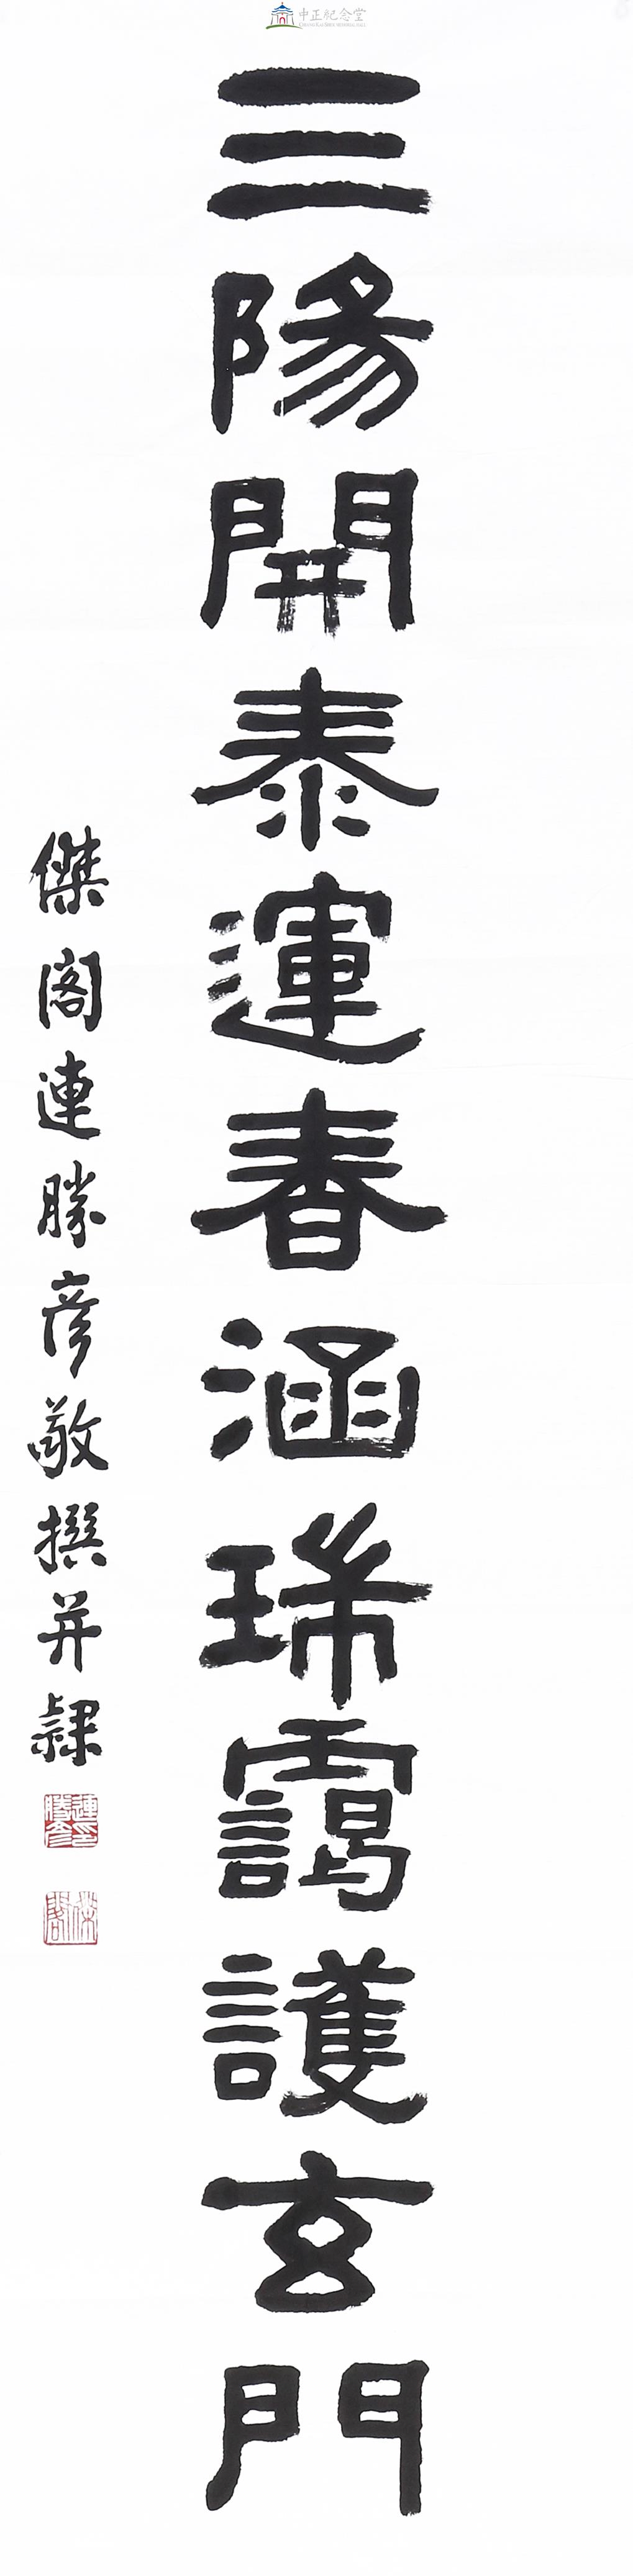 中正紀念堂
三陽開泰運春涵瑞靄護玄門
傑閣連勝彥敬撰并隸
連勝彥印
傑閣